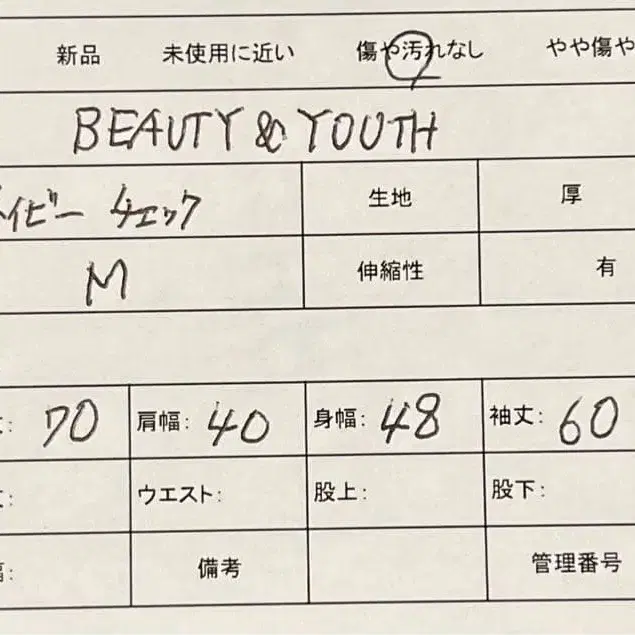 新品 未使用に近い 傷や汚れなし やや傷や
BEAUTY & YOUTH
ネイビー チェック 生地 厚
M 伸縮性 有
丈: 70 肩幅: 40 身幅: 48 袖丈: 60
ウエスト: 股上: 股下:
備考 管理番号